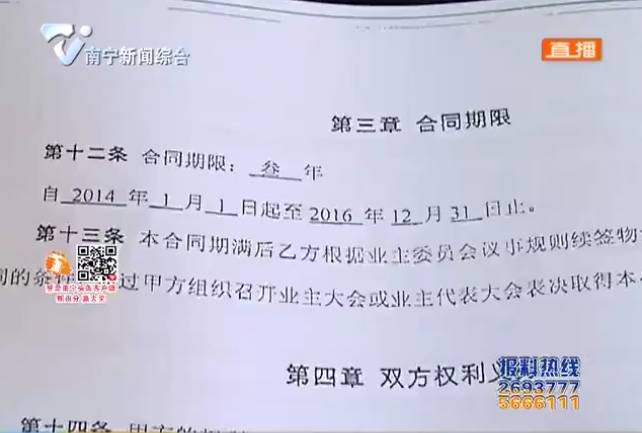 南宁新闻综合
直播
第三章 合同期限
第十二条 合同期限：叁 年
自 2014 年 1 月 1 日起至 2016 年 12 月 31 日止。
第十三条 本合同期满后乙方根据业主委员会议事规则续签物
的条 过甲方组织召开业主大会或业主代表大会表决取得本
第四章 双方权利义
报料热线
2693777
5666111
第十四条 甲方的